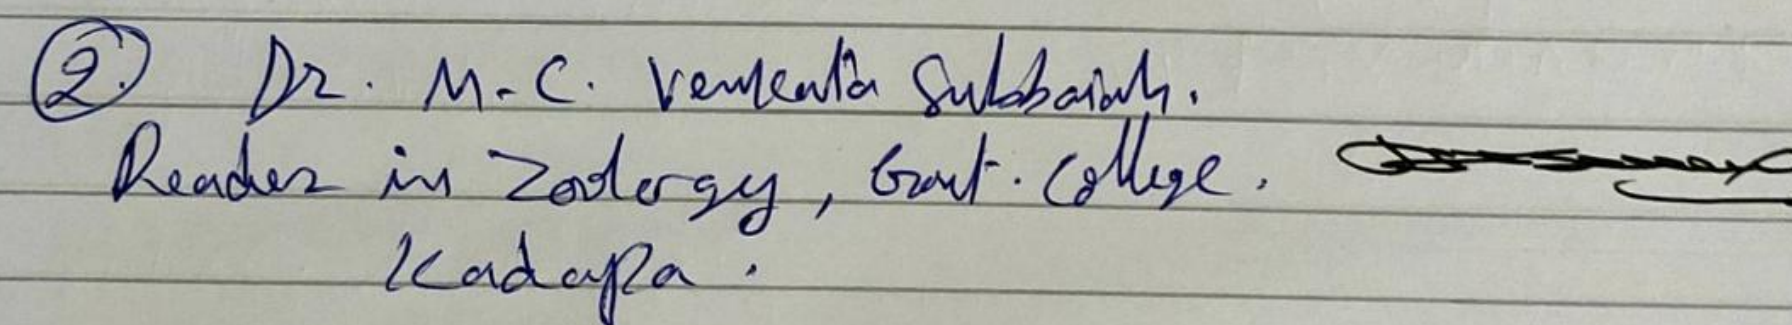 ② Dr. M.C. Venkata Subbaiah.
Reader in Zoology, Govt. College.
Kadapa.